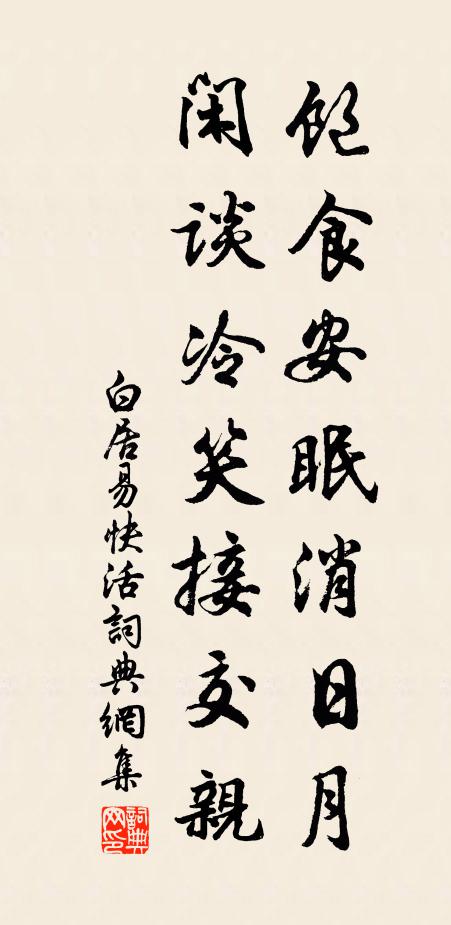 飽食安眠消日月
閑談冷笑接交親
白居易快活詞典網集
詞典網印